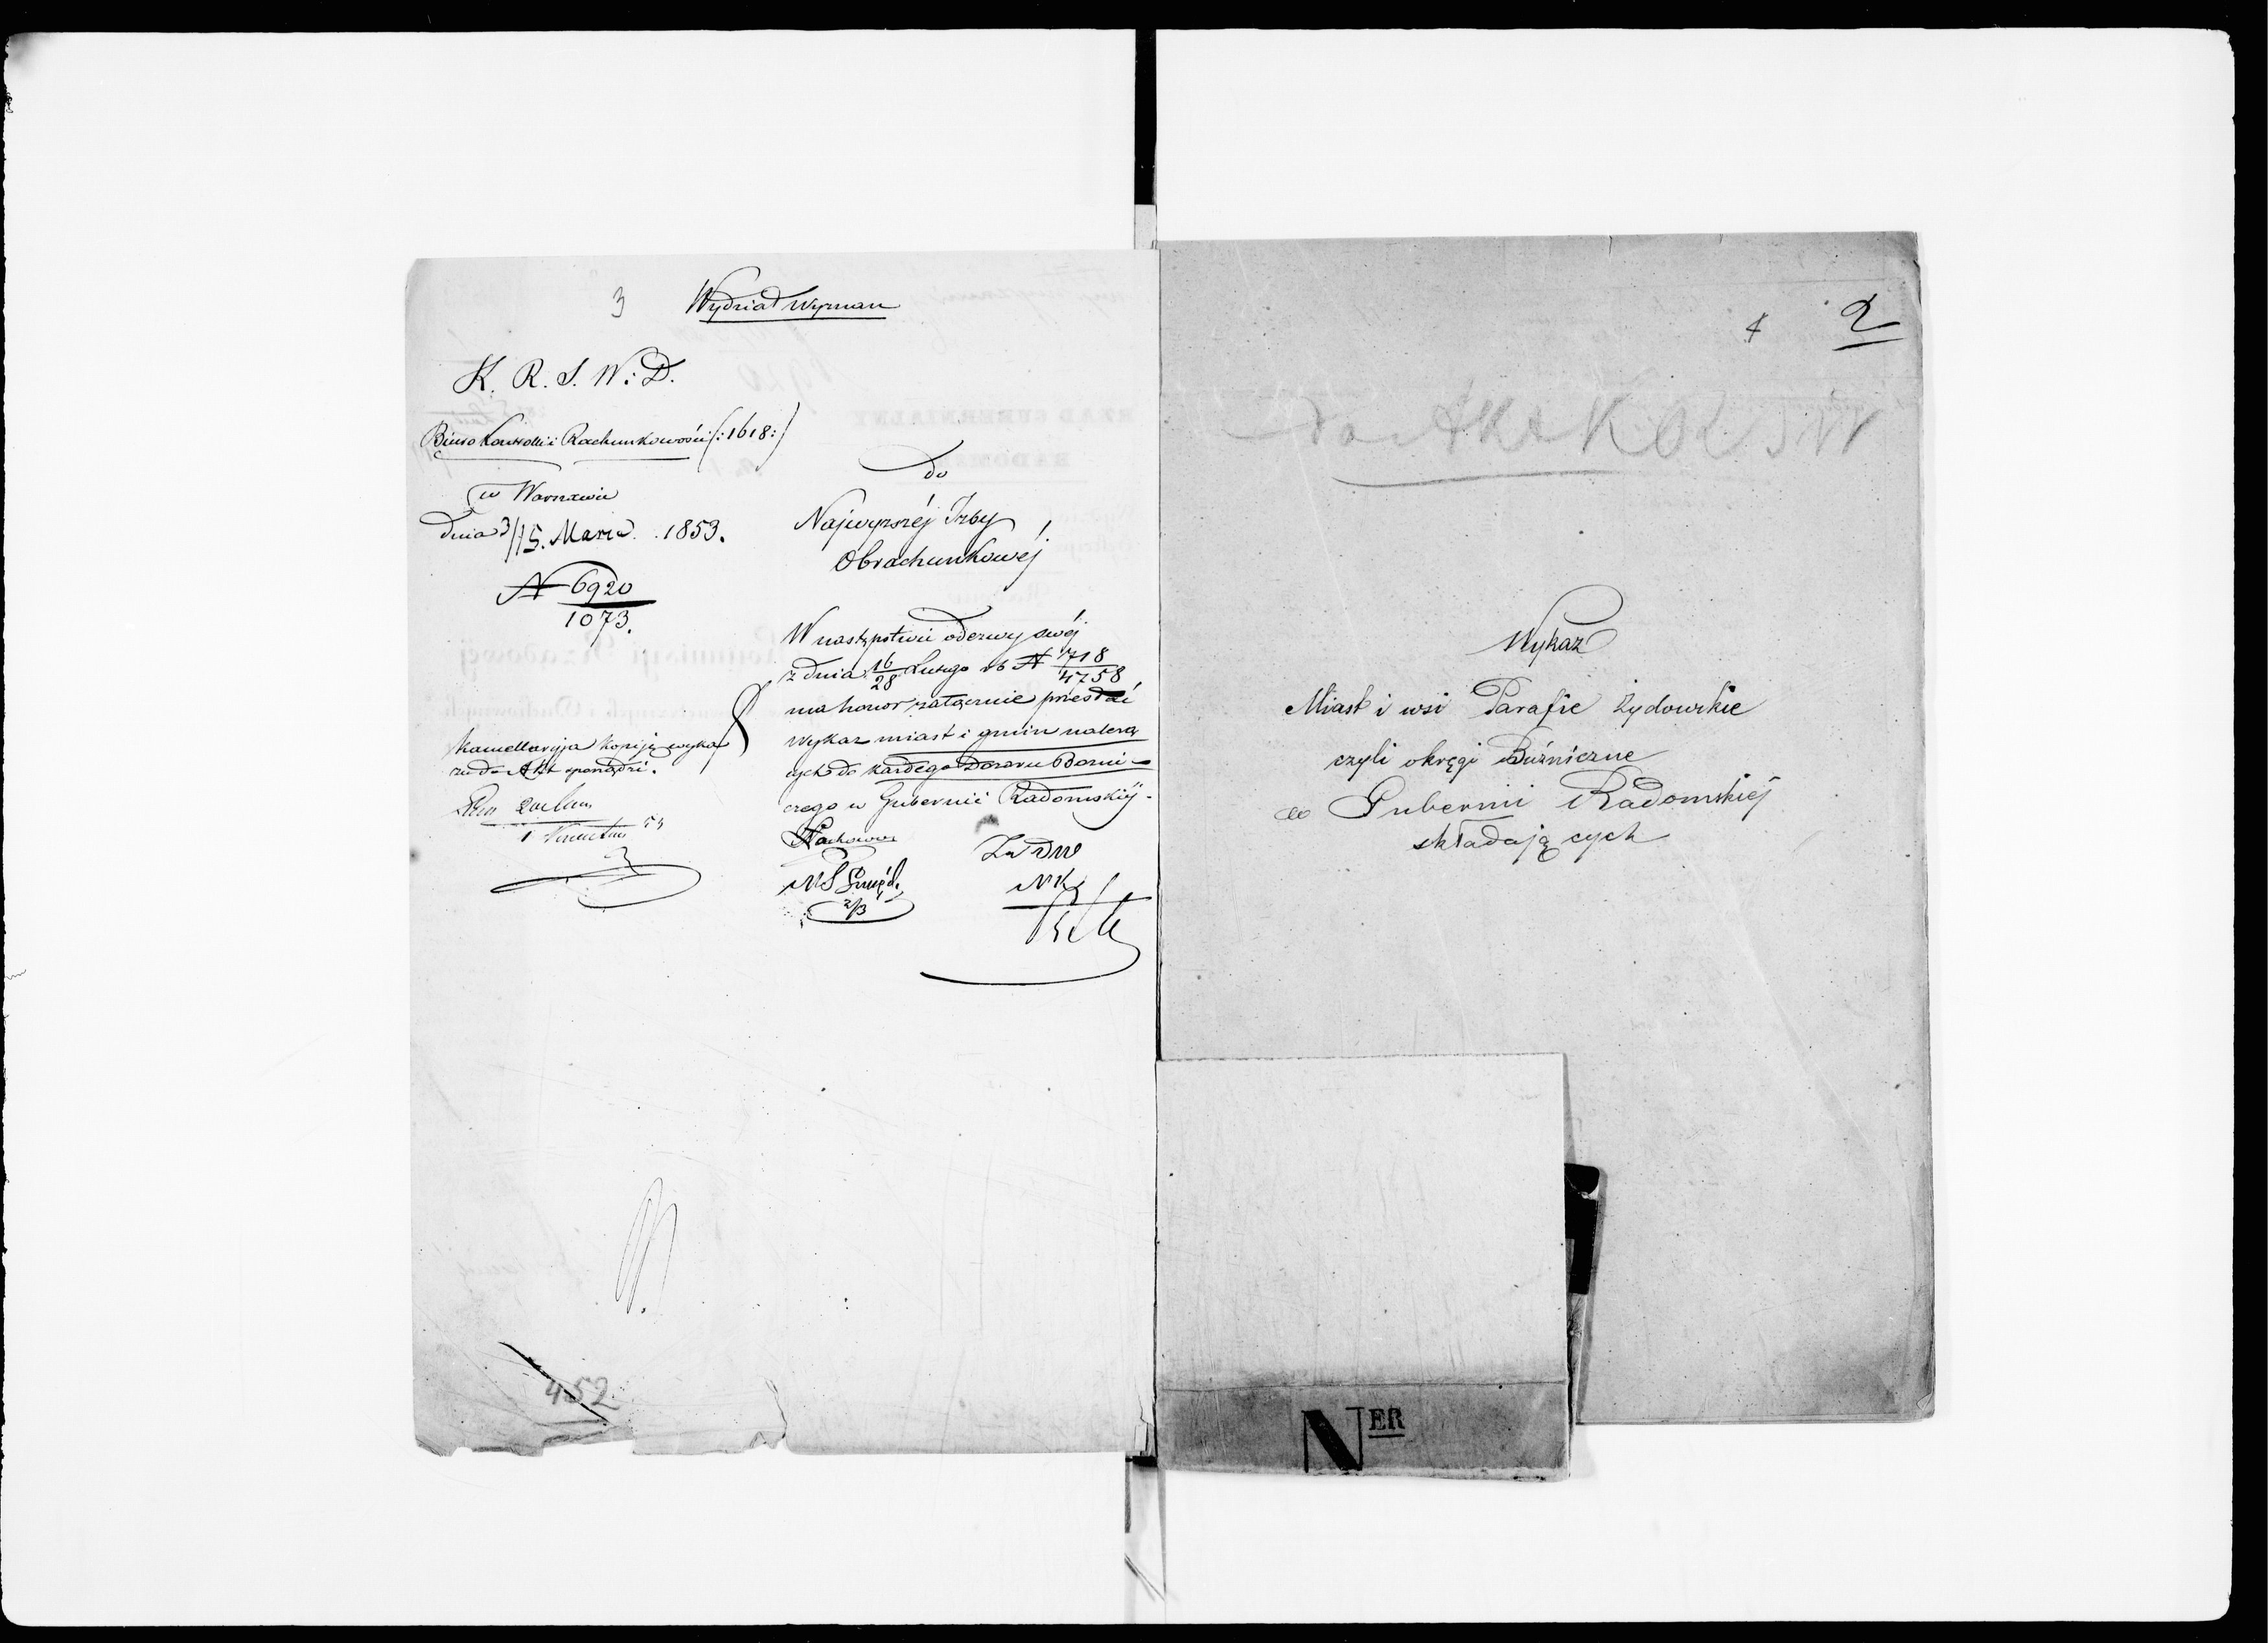 3 Wydział Wyznań
K. R. S. W. i D.
Biuro Kontrolli i Rachunkowości (:1618:)
w Warszawie
dnia 3/15. Marca 1853.
N 6920
1073.
do
Najwyższéj Izby
Obrachunkowéj
W następstwie odezwy swéj
z dnia 16/28 Lutego rb N 718/4758
ma honor załącznie przesłać
wykaz miast i gmin należą
cych do każdego Dozoru Bożni-
czego w Gubernii Radomskiéj.
Kancellaryja kopiją wyka
zu do Akt sporządzi.
Za D W
N K
452
4 2
do Akt K R S W
Wykaz
Miast i wsi Parafie żydowskie
czyli okręgi Bużniczne
w Gubernii Radomskiéj
składających
N ER